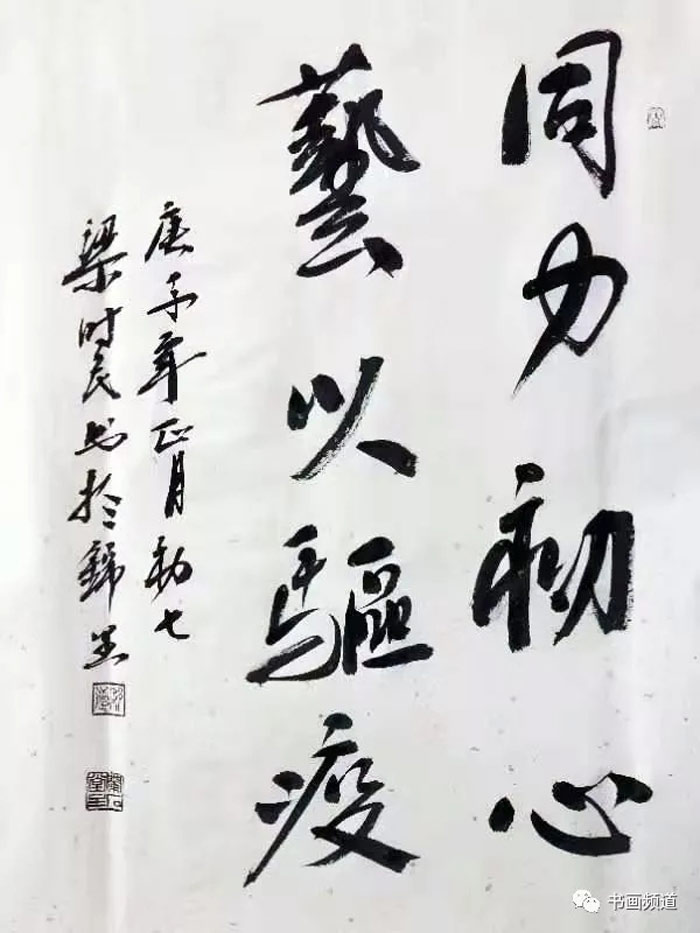 同力初心
藝以驅疫
庚子年正月初七
梁时民书於
书画频道